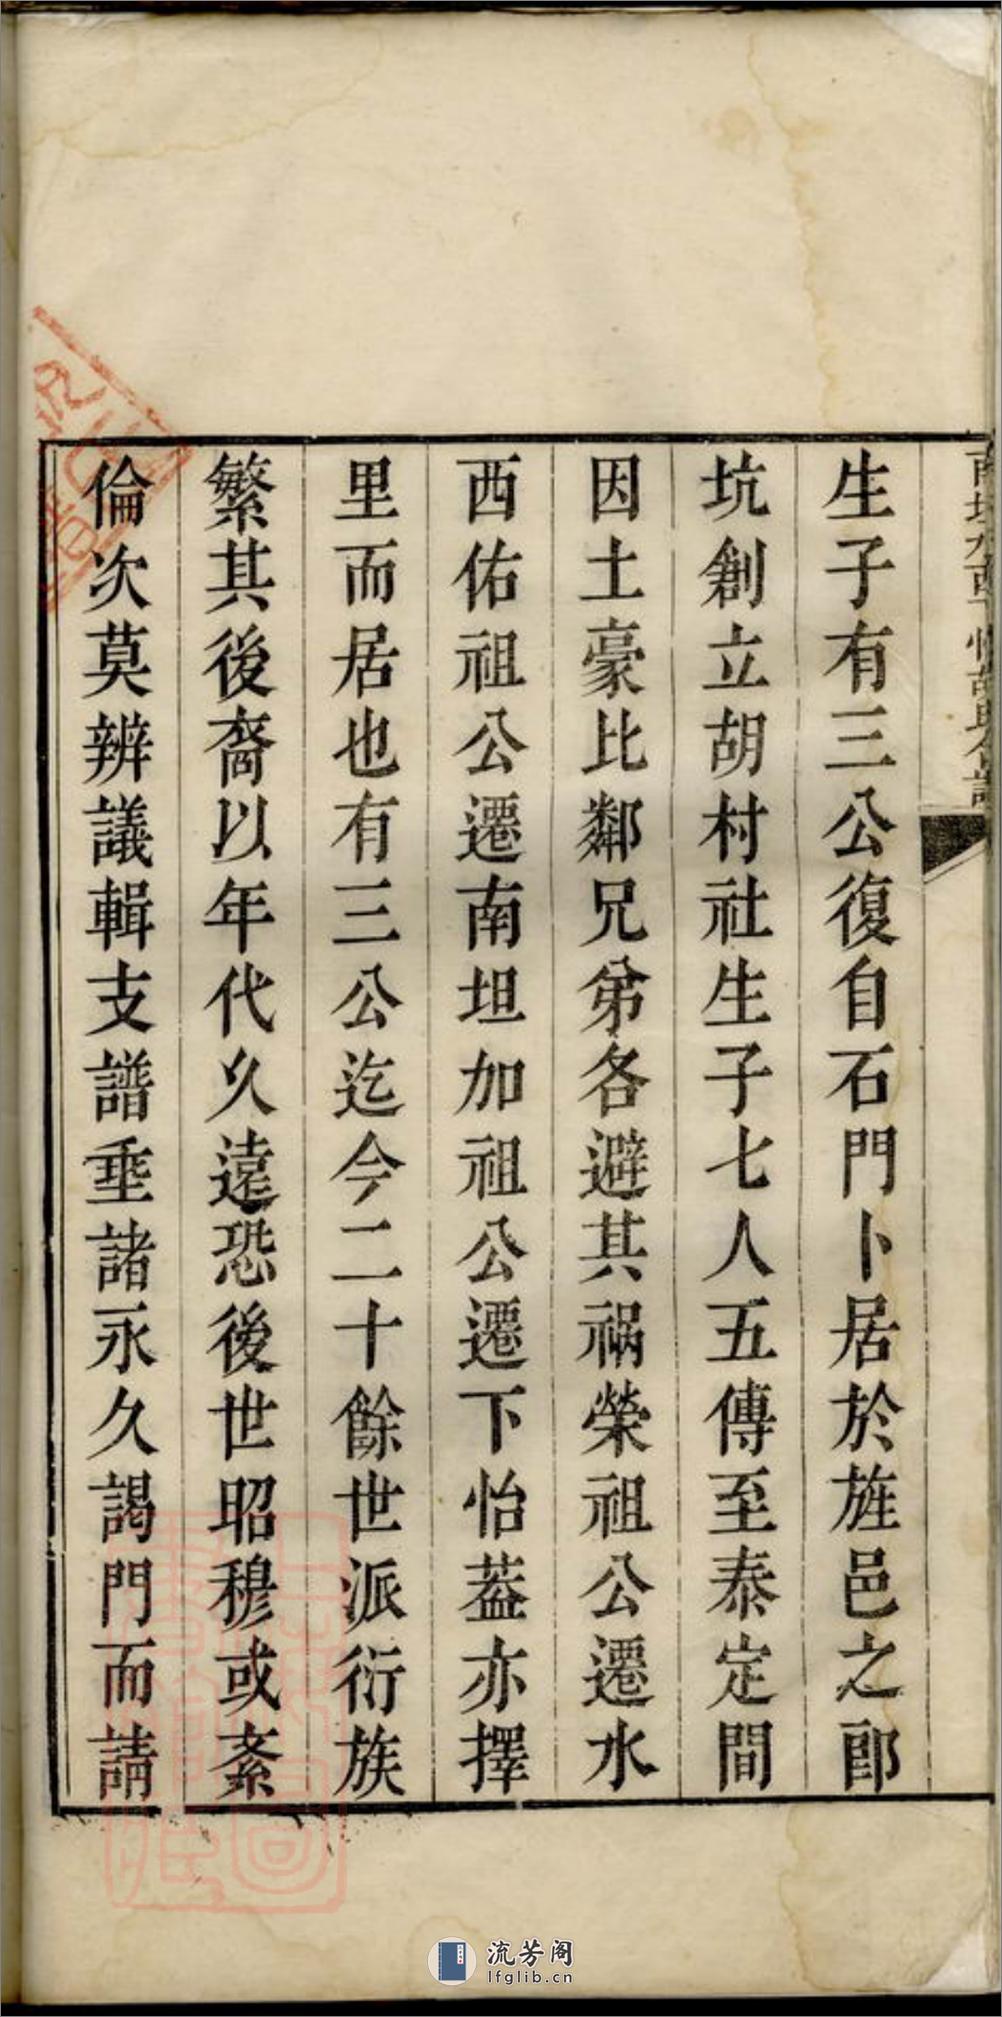 生子有三公復自石門卜居於旌邑之郎
坑創立胡村社生子七人五傳至泰定間
因土豪比鄰兄弟各避其禍榮祖公遷水
西佑祖公遷南坦加祖公遷下怡葢亦擇
里而居也有三公迄今二十餘世派衍族
繁其後裔以年代久遠恐後世昭穆或紊
倫次莫辨議輯支譜垂諸永久謁門而請
流芳阁
lfglib.cn